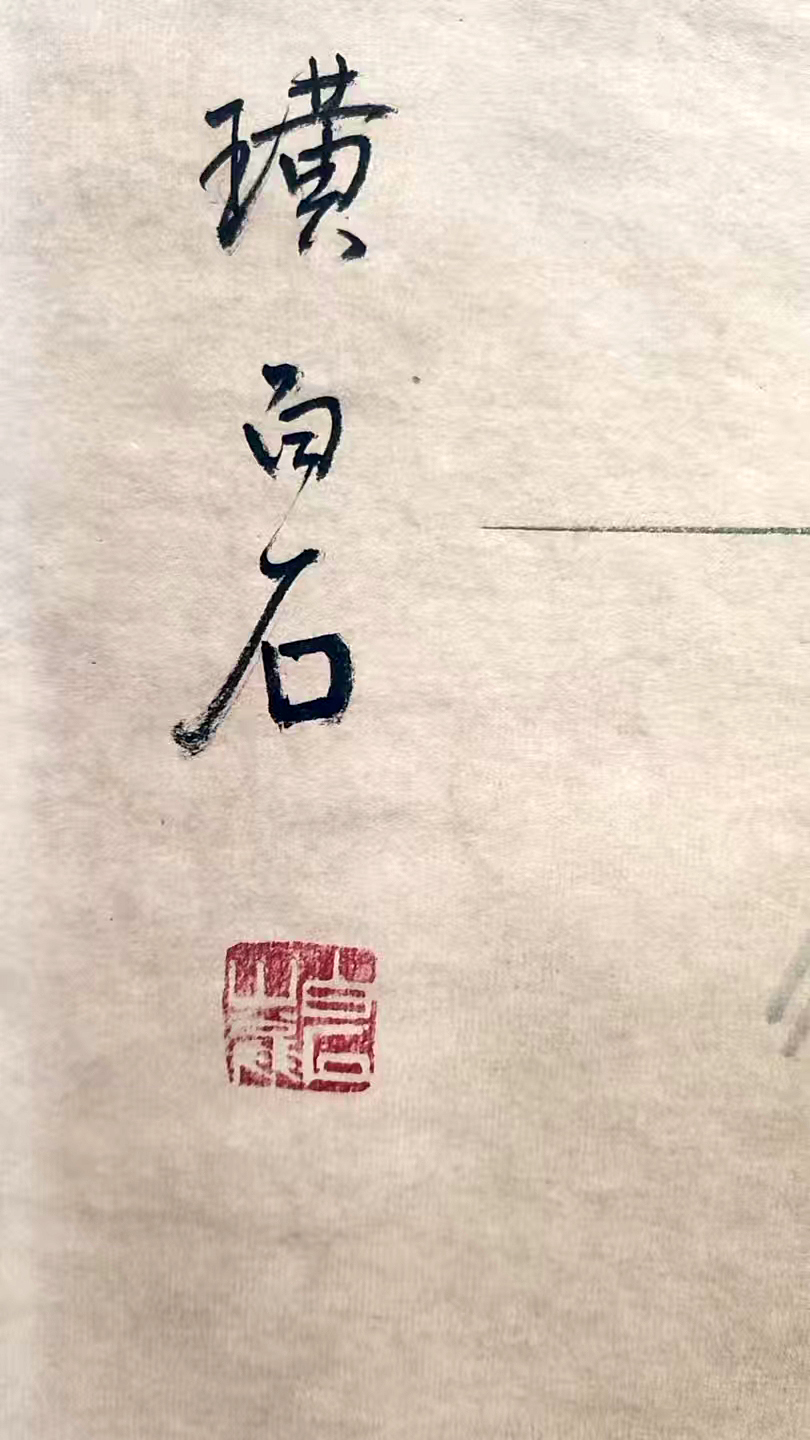 璜
白石